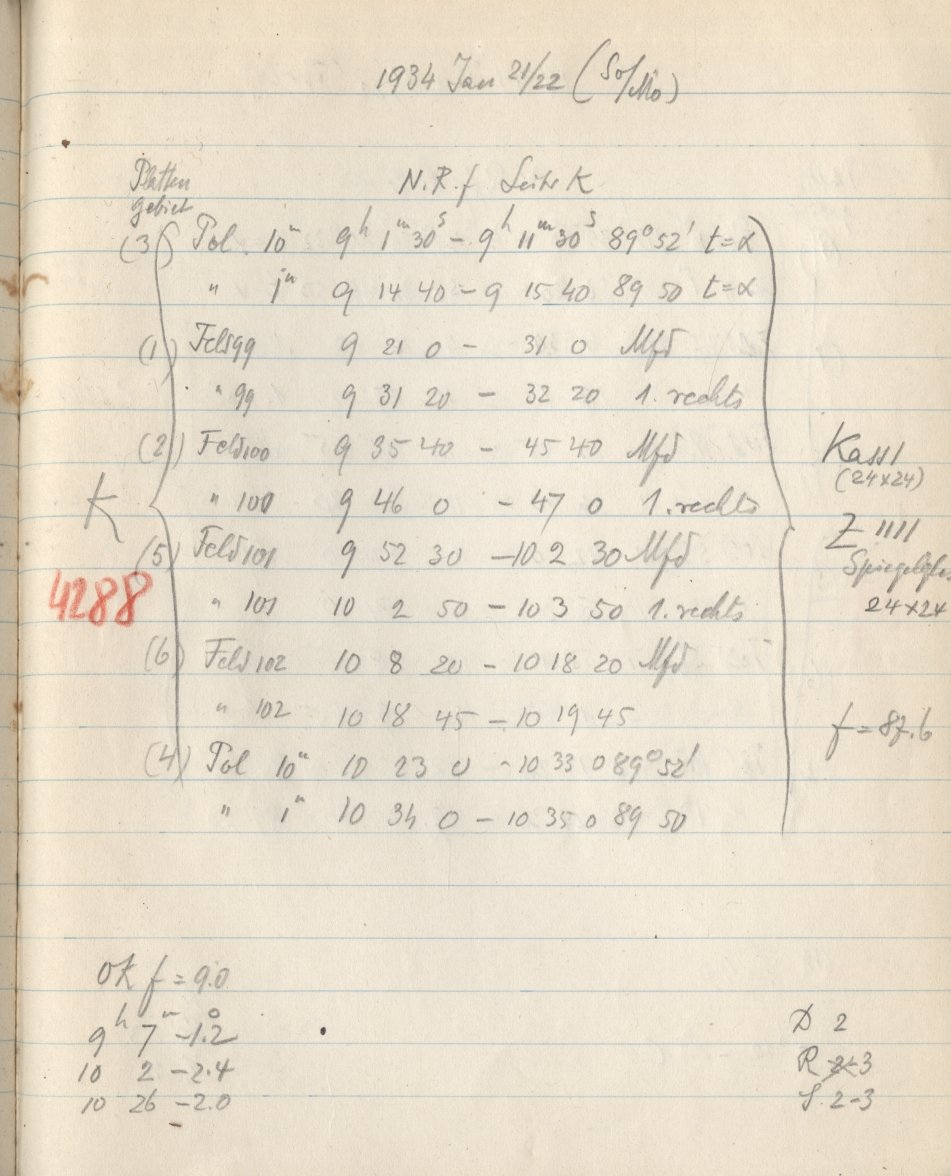 1934 Jan 21/22 (So/Mo)
Platten
gebiet
N.R.f Seite K
(3) Pol 10ᵐ 9ʰ 1ᵐ 30ˢ – 9ʰ 11ᵐ 30ˢ 89° 52' t=α
" 1ᵐ 9 14 40 – 9 15 40 89 50 t=α
(1) Feld 99 9 21 0 – 31 0 Mfd
" 99 9 31 20 – 32 20 1. rechts
(2) Feld 100 9 35 40 – 45 40 Mfd
" 100 9 46 0 – 47 0 1. rechts
(5) Feld 101 9 52 30 – 10 2 30 Mfd
" 101 10 2 50 – 10 3 50 1. rechts
(6) Feld 102 10 8 20 – 10 18 20 Mfd
" 102 10 18 45 – 10 19 45
(4) Pol 10ᵐ 10 23 0 – 10 33 0 89° 52'
" 1ᵐ 10 34 0 – 10 35 0 89 50
K
4288
Kass 1
(24x24)
Z 1111
Spiegelglas
24x24
f = 87.6
OK f = 9.0
9ʰ 7ᵐ –1.2°
10 2 –2.4
10 26 –2.0
D 2
R 2-3
S. 2-3